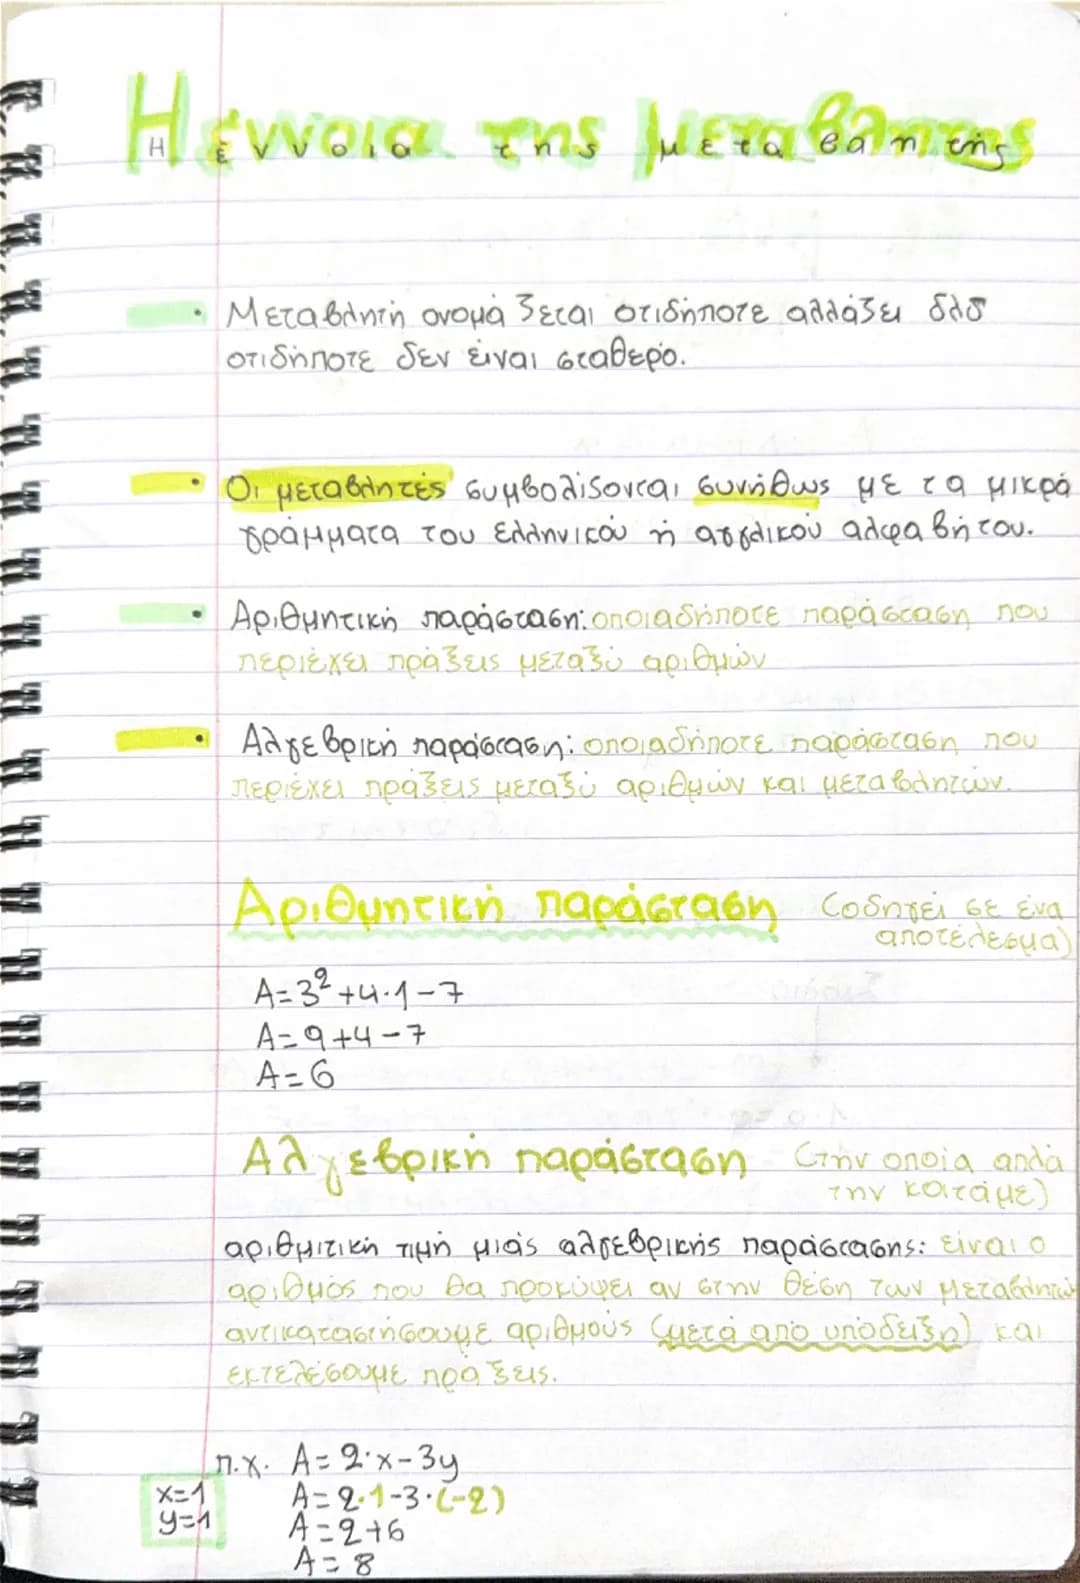 Η έννοια της μεταβλητής
• Μεταβλητή ονομάζεται οτιδήποτε αλλάζει δλδ
οτιδήποτε δεν είναι σταθερό.
• Οι μεταβλητές συμβολίζονται συνήθως με τα μικρά
γράμματα του ελληνικού ή αγγλικού αλφαβήτου.
• Αριθμητική παράσταση: οποιαδήποτε παράσταση που
περιέχει πράξεις μεταξύ αριθμών
• Αλγεβρική παράσταση: οποιαδήποτε παράσταση που
περιέχει πράξεις μεταξύ αριθμών και μεταβλητών.
Αριθμητική παράσταση (οδηγεί σε ένα
αποτέλεσμα)
A=3²+4·1-7
A=9+4-7
A=6
Αλγεβρική παράσταση (την οποία απλά
την κοιτάμε)
αριθμιτική τιμή μιάς αλγεβρικής παράστασης: είναι ο
αριθμός που θα προκύψει αν στην θέση των μεταβλητών
αντικαταστήσουμε αριθμούς (μετά από υπόδειξη) και
εκτελέσουμε πράξεις.
π.χ. A=2·x-3y
x=1 A=2·1-3·(-2)
y=1 A=2+6
A=8